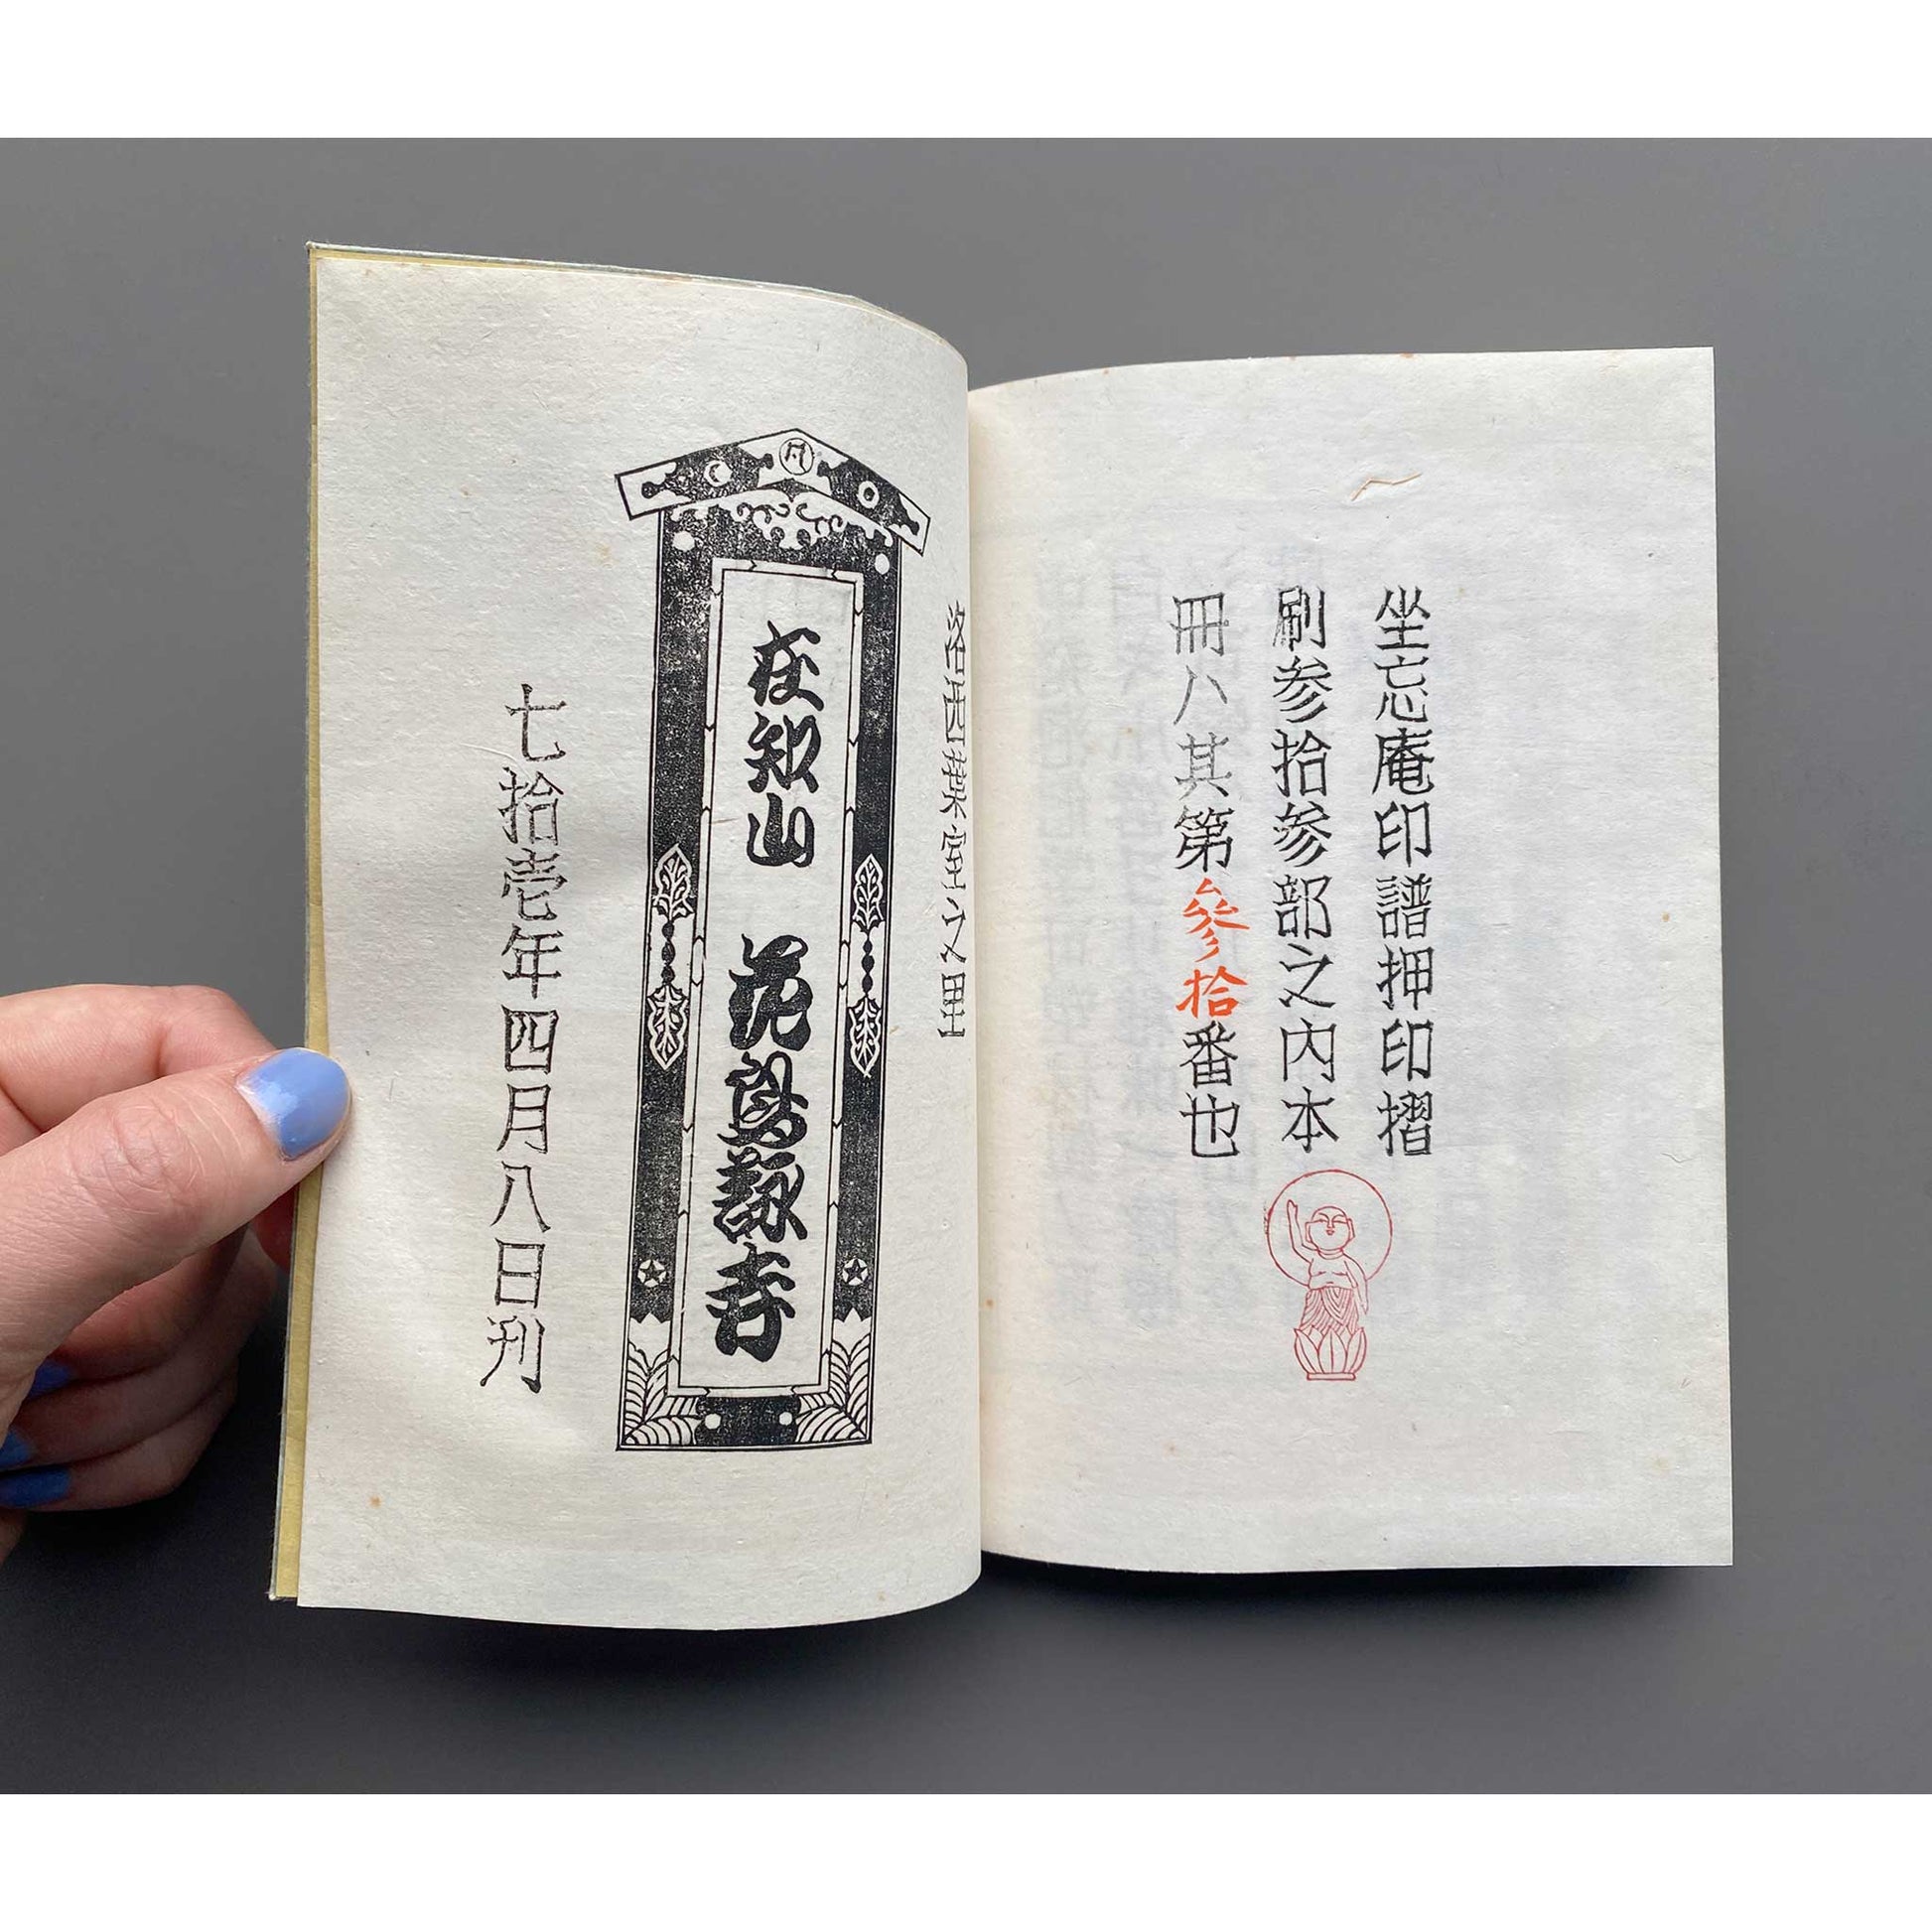 坐忘庵印譜押印摺
刷参拾参部之内本
冊ハ其第參拾番也
洛西葉室之里
七拾壱年四月八日刊